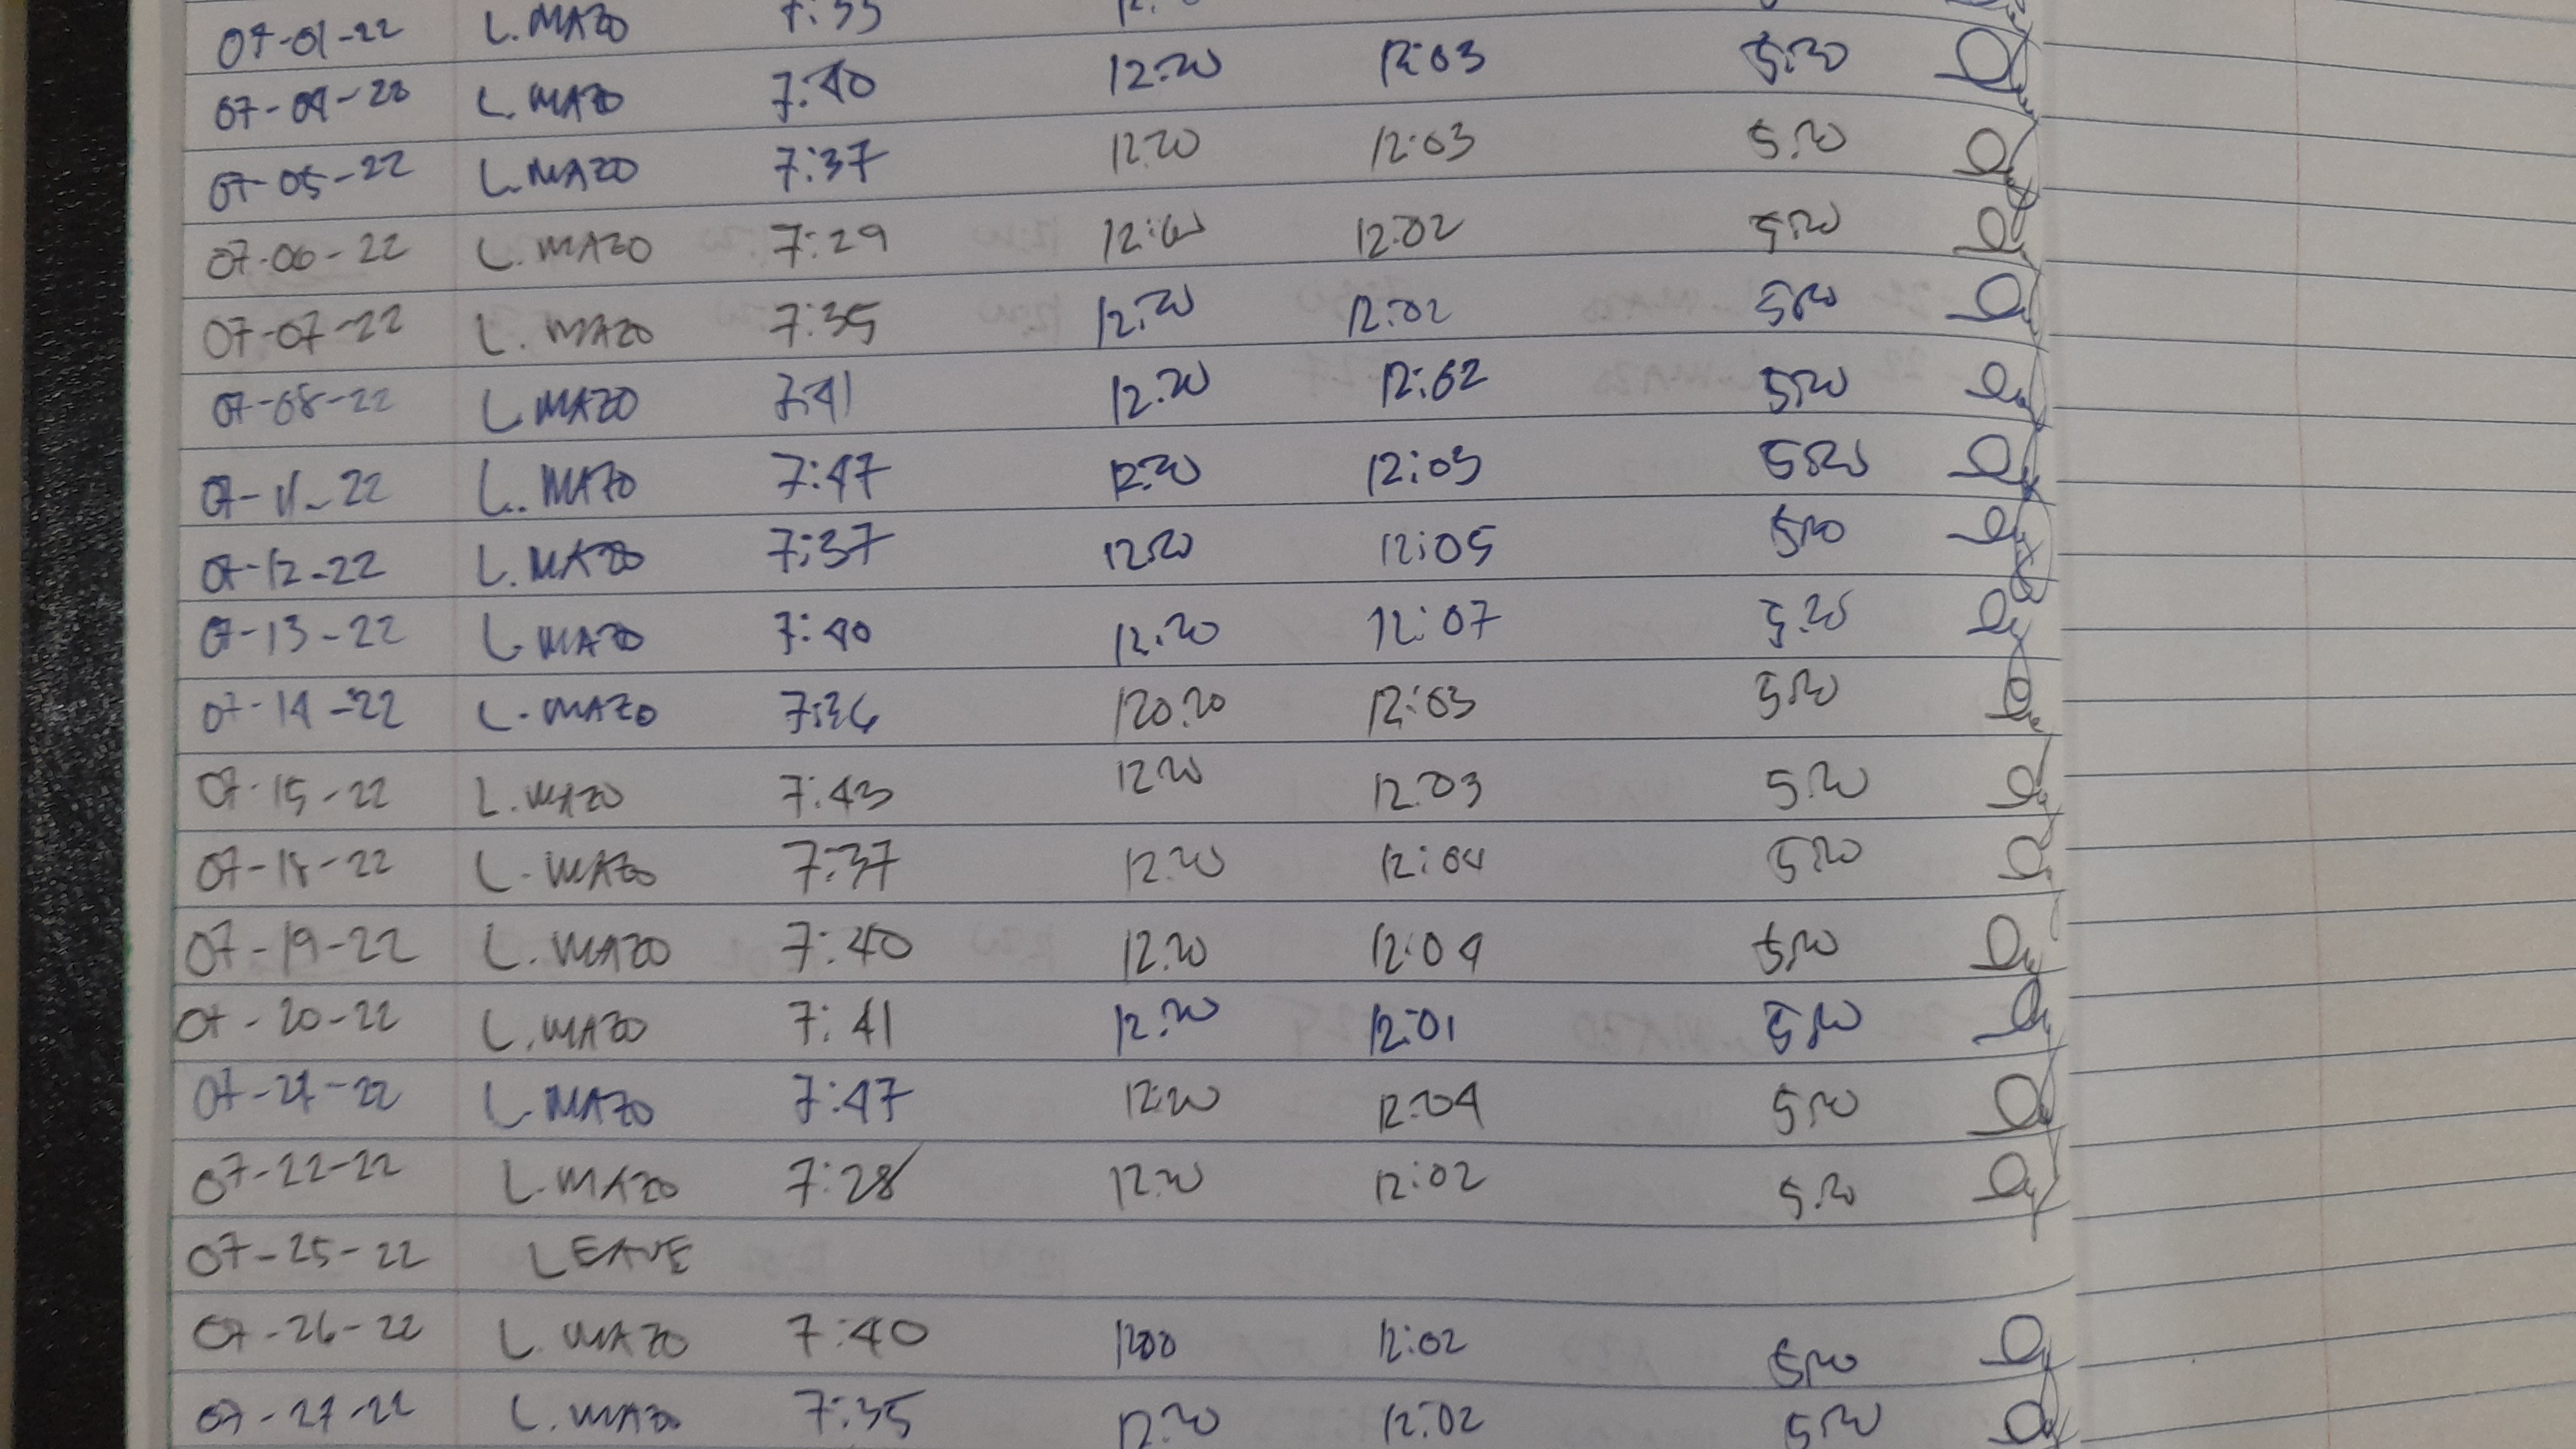 07-01-22 L. MAZO 7:33
07-04-22 L. MAZO 7:40 12:20 12:03 5:20
07-05-22 L. MAZO 7:37 12:20 12:03 5:20
07-06-22 L. MAZO 7:29 12:02 5:20
07-07-22 L. MAZO 7:35 12:20 12:02 5:20
07-08-22 L. MAZO 7:41 12:20 12:02 5:20
07-11-22 L. MAZO 7:47 12:20 12:03 5:20
07-12-22 L. MAZO 7:37 12:20 12:05 5:20
07-13-22 L. MAZO 7:40 12:20 12:07 5:20
07-14-22 L. MAZO 7:36 120:20 12:03 5:20
07-15-22 L. MAZO 7:43 12:20 12:03 5:20
07-18-22 L. MAZO 7:37 12:20 12:04 5:20
07-19-22 L. MAZO 7:40 12:20 12:04 5:20
07-20-22 L. MAZO 7:41 12:20 12:01 5:20
07-21-22 L. MAZO 7:47 12:20 12:04 5:20
07-22-22 L. MAZO 7:28 12:20 12:02 5:20
07-25-22 LEAVE
07-26-22 L. MAZO 7:40 1200 12:02 5:20
07-27-22 L. MAZO 7:35 12:20 12:02 5:20